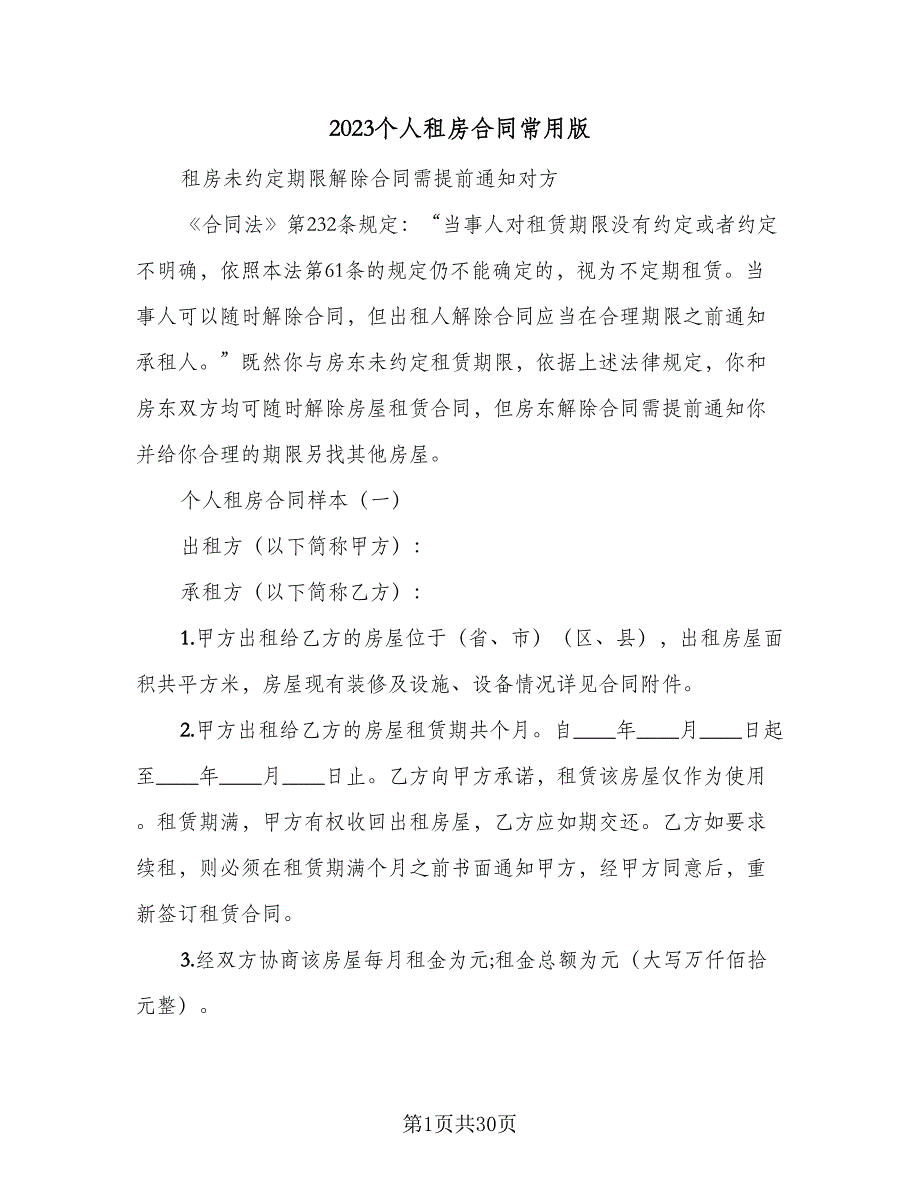 2023个人租房合同常用版
租房未约定期限解除合同需提前通知对方
《合同法》第232条规定：“当事人对租赁期限没有约定或者约定
不明确，依照本法第61条的规定仍不能确定的，视为不定期租赁。当
事人可以随时解除合同，但出租人解除合同应当在合理期限之前通知
承租人。”既然你与房东未约定租赁期限，依据上述法律规定，你和
房东双方均可随时解除房屋租赁合同，但房东解除合同需提前通知你
并给你合理的期限另找其他房屋。
个人租房合同样本（一）
出租方（以下简称甲方）：
承租方（以下简称乙方）：
1.甲方出租给乙方的房屋位于（省、市）（区、县），出租房屋面
积共平方米，房屋现有装修及设施、设备情况详见合同附件。
2.甲方出租给乙方的房屋租赁期共个月。自____年____月____日起
至____年____月____日止。乙方向甲方承诺，租赁该房屋仅作为使用
。租赁期满，甲方有权收回出租房屋，乙方应如期交还。乙方如要求
续租，则必须在租赁期满个月之前书面通知甲方，经甲方同意后，重
新签订租赁合同。
3.经双方协商该房屋每月租金为元;租金总额为元（大写万仟佰拾
元整）。
第1页共30页